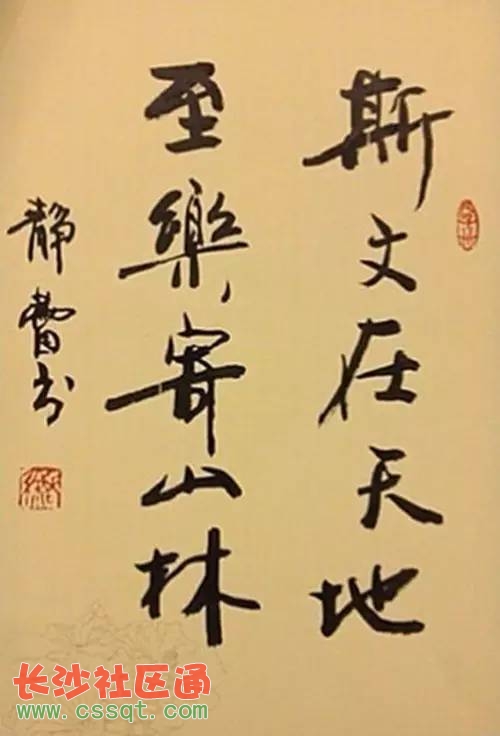 斯文在天地
至樂寄山林
静書书
长沙社区通
www.cssqt.com